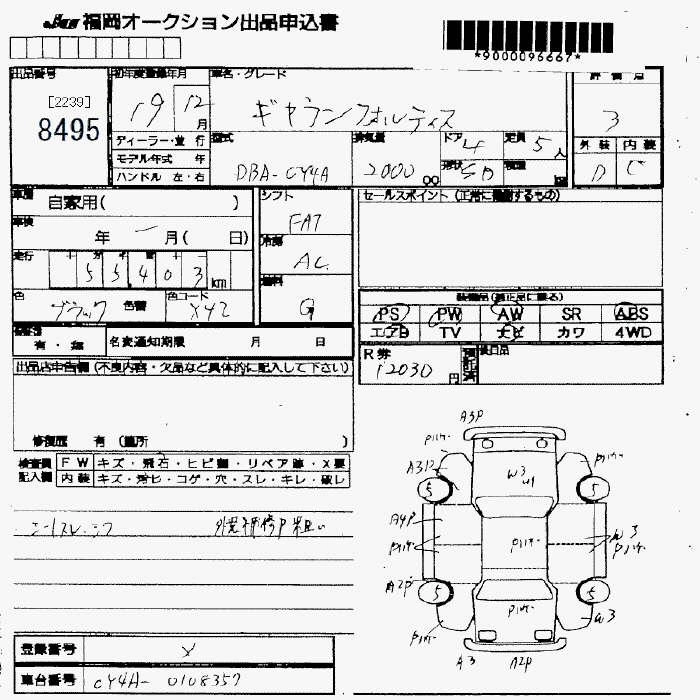 福岡オークション出品申込書
*9000096667*
出品番号
[2239]
8495
初年度登録年月
19 12月
車名・グレード
ギャランフォルティス
評価点
3
ディーラー・並行
モデル年式 年
ハンドル 左・右
型式
DBA-CY4A
排気量
2000
ドア
4
形状
SD
定員
5人
積載
外装 内装
D C
車歴
自家用( )
車検
年 月( 日)
走行
55403km
色
ブラック 色替
色コード
X42
シフト
FAT
冷房
AC
燃料
G
セールスポイント (正常に機能するもの)
装備品(純正品に限る)
PS PW AW SR ABS
エアB TV ナビ カワ 4WD
有・無
名変通知期限 月 日
R券
12030円
預託済
後日品
出品店申告欄 (不良内容・欠品など具体的に記入して下さい)
修復歴 有 (箇所 )
検査員記入欄
FW キズ・飛石・ヒビ割・リペア跡・X要
内装 キズ・汚れ・コゲ・穴・スレ・キレ・破レ
シートスレ
A3P
A3
W3
U1
5
5
A4P
W3
A2P
5
5
W3
A3
A2P
登録番号
車台番号 CY4A-0108357